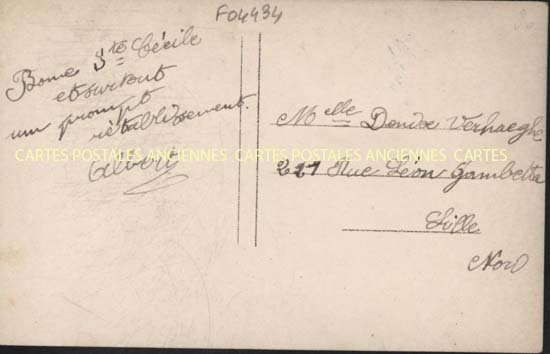 F04434
Bonne Ste Cécile
et surtout
un prompt
rétablissement.
Albert
Melle Denise Verhaeghe
CARTES POSTALES ANCIENNES CARTES POSTALES ANCIENNES CARTES
227 Rue Léon Gambetta
Lille
Nord